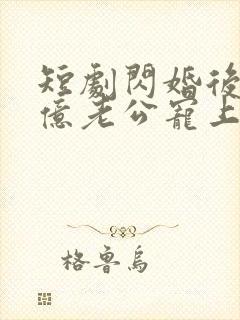 短劇閃婚後
億老公寵上
格魯烏